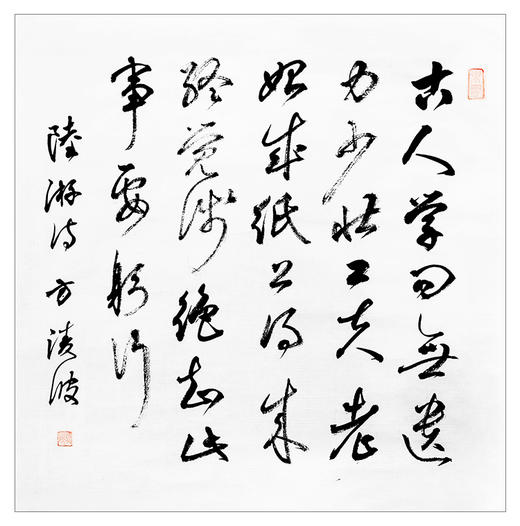 古人学问無遗
力少壮工夫老
始成紙上得来
終觉浅絶知此
事要躬行
陸游诗 方 波